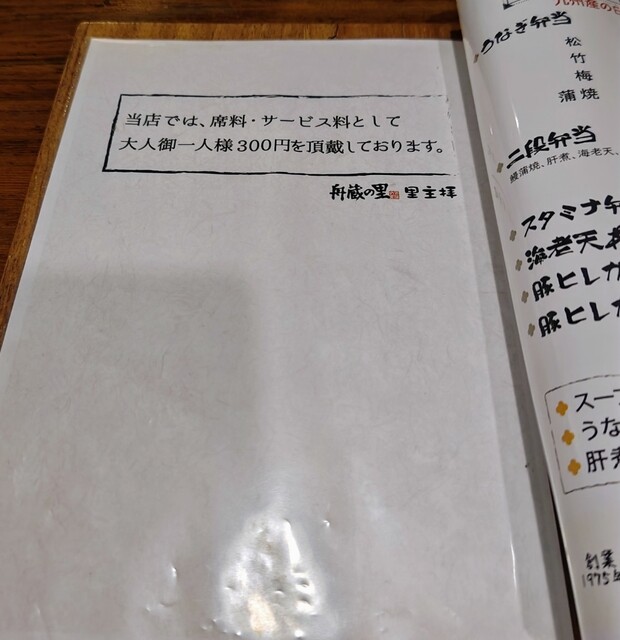 当店では、席料・サービス料として
大人御一人様300円を頂戴しております。
舟蔵の里 里主拝
九州産の
うなぎ弁当
松
竹
梅
蒲焼
二段弁当
鰻蒲焼、肝煮、海老天、
スタミナ弁
海老天
豚ヒレカ
豚ヒレカ
スープ
うな
肝煮
創業
1975年